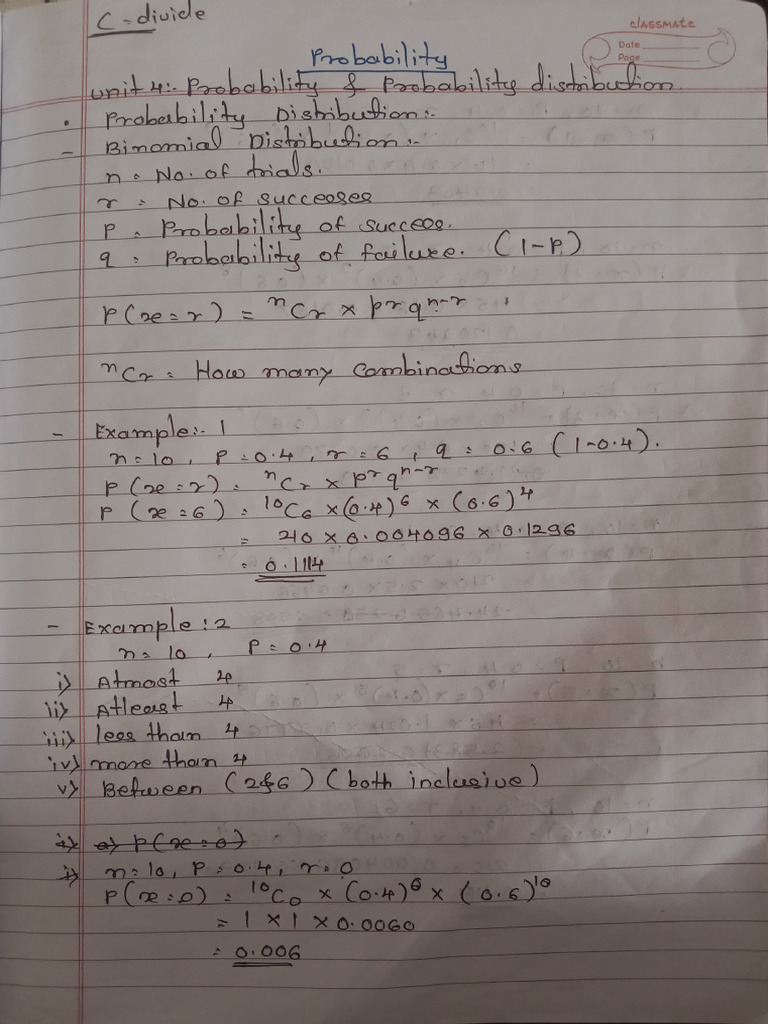 C = divide
classmate
Date
Page
Probability
unit 4:- Probability & Probability distribution.
• Probability Distribution:-
- Binomial Distribution:-
n = No. of trials.
r = No. of successes
P = Probability of success.
q = Probability of failure. (1-P)
P(x=r) = ⁿCr × pʳqⁿ⁻ʳ
ⁿCr = How many Combinations
- Example:- 1
n=10, P=0.4, r=6, q=0.6 (1-0.4).
P(x=r) = ⁿCr × pʳqⁿ⁻ʳ
P(x=6) = ¹⁰C₆ ×(0.4)⁶ × (0.6)⁴
= 210 × 0.004096 × 0.1296
= 0.1114
- Example:2
n=10, P=0.4
i) Atmost 4
ii) Atleast 4
iii) less than 4
iv) more than 4
v) Between (2&6) (both inclusive)
i) a) P(x=0)
i) n=10, P=0.4, r=0
P(x=0) = ¹⁰C₀ × (0.4)⁰ × (0.6)¹⁰
= 1 × 1 × 0.0060
= 0.006